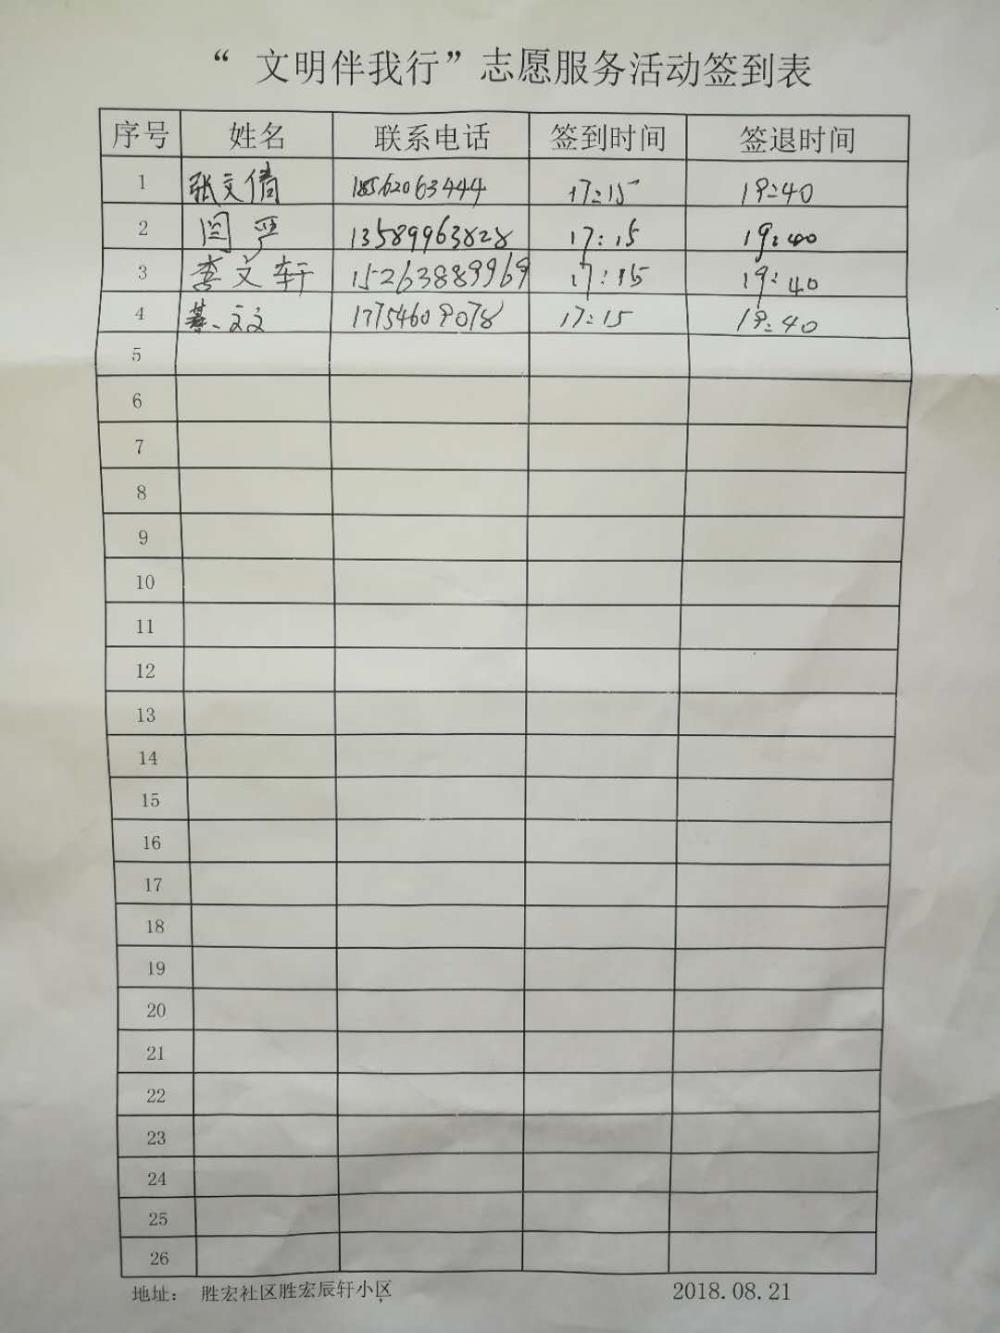 “文明伴我行”志愿服务活动签到表
序号 姓名 联系电话 签到时间 签退时间
1 张文倩 18562063444 17:15 19:40
2 闫严 13589963828 17:15 19:40
3 李文轩 15263889969 17:15 19:40
4 綦文文 17754609078 17:15 19:40
5
6
7
8
9
10
11
12
13
14
15
16
17
18
19
20
21
22
23
24
25
26
地址： 胜宏社区胜宏辰轩小区 2018.08.21